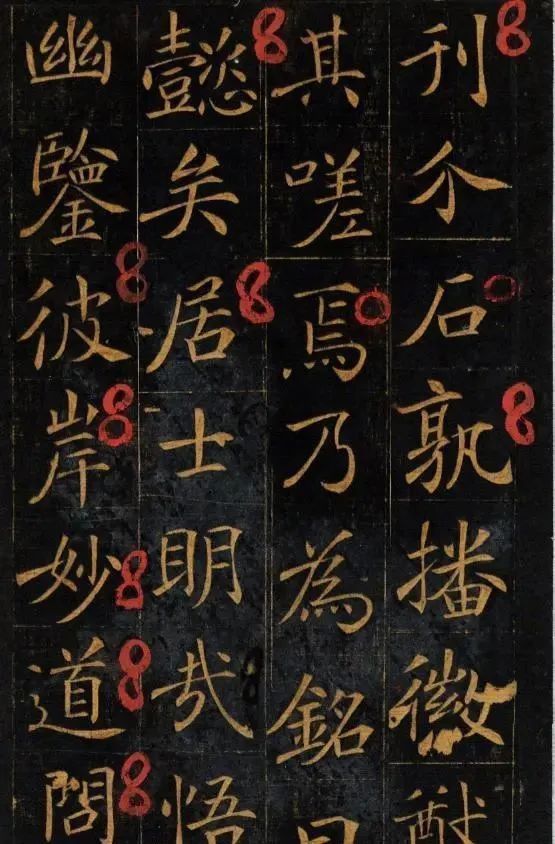 刊介石孰播徽猷
其嗟焉乃為銘曰
懿矣居士明哉悟
幽鑒彼岸妙道問